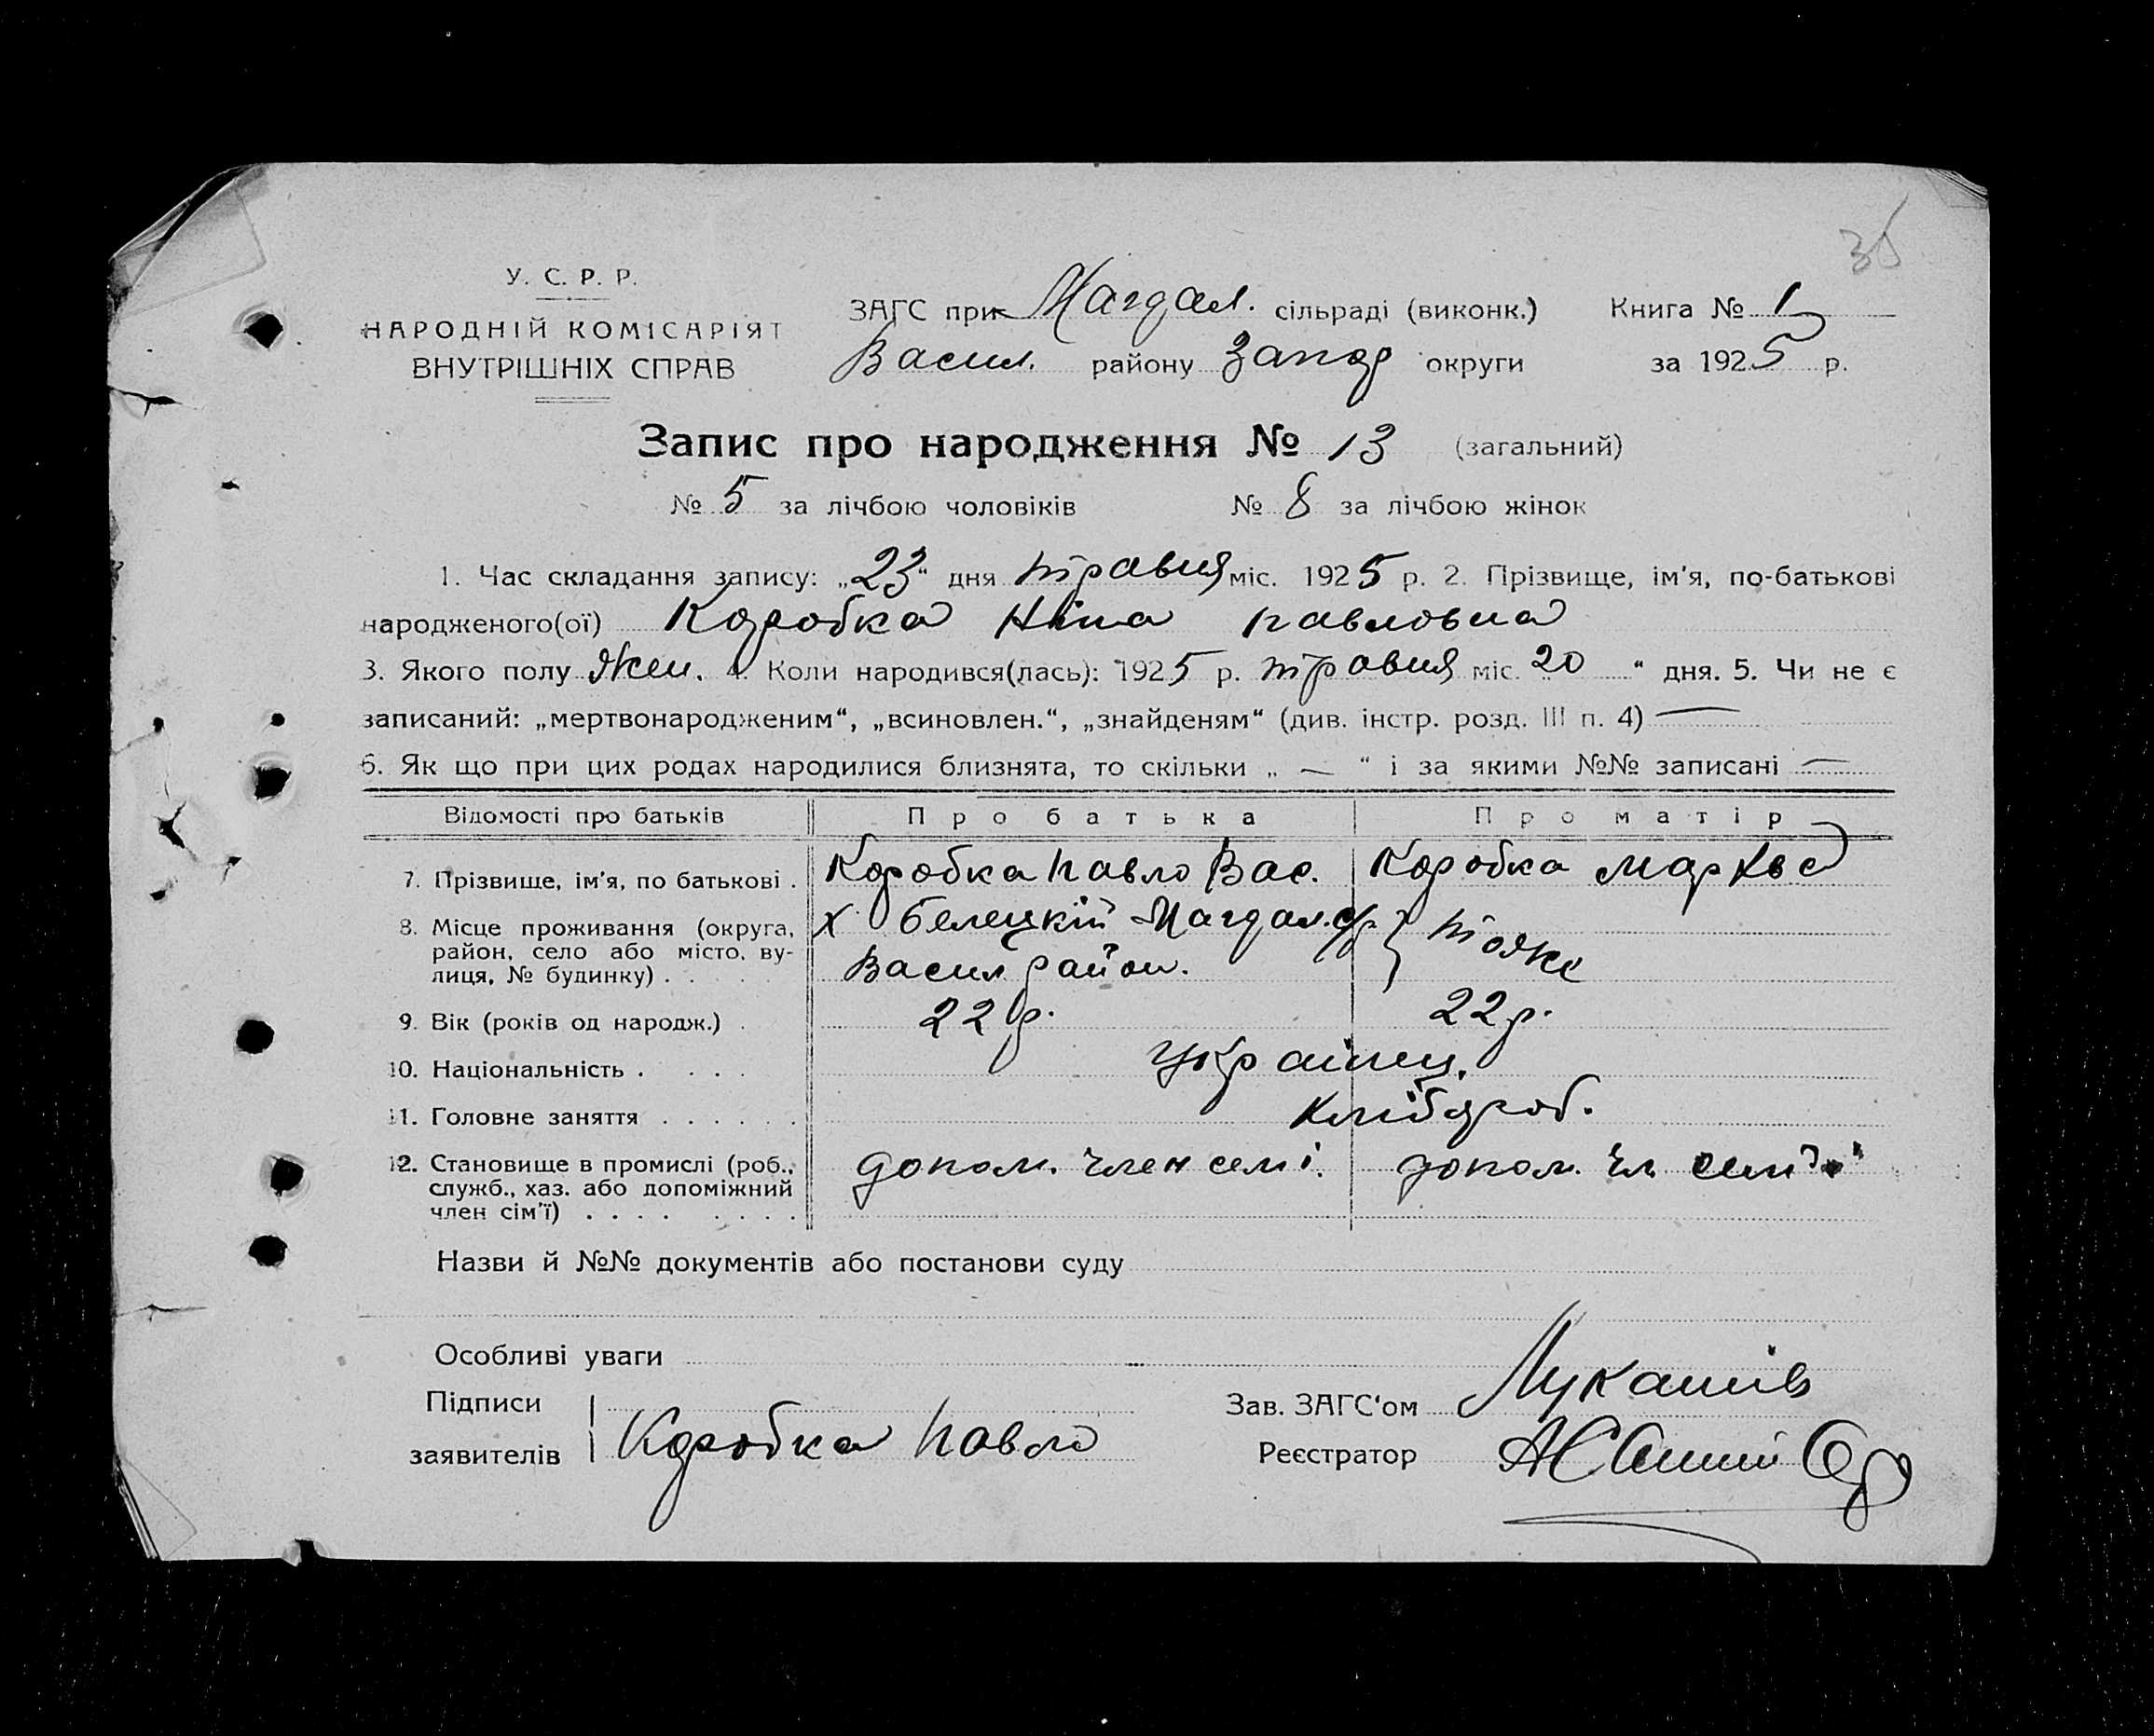 35
У. С. Р. Р.
НАРОДНІЙ КОМІСАРІЯТ
ВНУТРІШНІХ СПРАВ
ЗАГС при Магдал. сільраді (виконк.) Книга № 1
Васил. району Запор округи за 1925 р.
Запис про народження № 13 (загальний)
№ 5 за лічбою чоловіків № 8 за лічбою жінок
1. Час складання запису: „23“ дня травня міс. 1925 р. 2. Прізвище, ім'я, по-батькові
народженого(ої) Коробка Ніна Павловна
3. Якого полу Жен. 4. Коли народився(лась): 1925 р. травня міс. 20 “ дня. 5. Чи не є
записаний: „мертвонародженим“, „всиновлен.“, „знайденям“ (див. інстр. розд. III п. 4) —
6. Як що при цих родах народилися близнята, то скільки „ — “ і за якими №№ записані —
Відомості про батьків Про батька Про матір
7. Прізвище, ім'я, по батькові . Коробка Павло Вас. Коробка
8. Місце проживання (округа, х Белецкій Магдал. с/р } тояже
район, село або місто, ву- Васил район.
лиця, № будинку) . . . .
9. Вік (років од народж.) . 22 р. 22 р.
10. Національність . . . . українец.
11. Головне заняття . . . . . . хлібороб.
12. Становище в промислі (роб., допом. член семі. допом. чл семії
служб., хаз. або допоміжний
член сім'ї) . . . . . . . .
Назви й №№ документів або постанови суду
Особливі уваги
Підписи
заявителів Коробка Павло
Зав. ЗАГС'ом Лукашів
Реєстратор